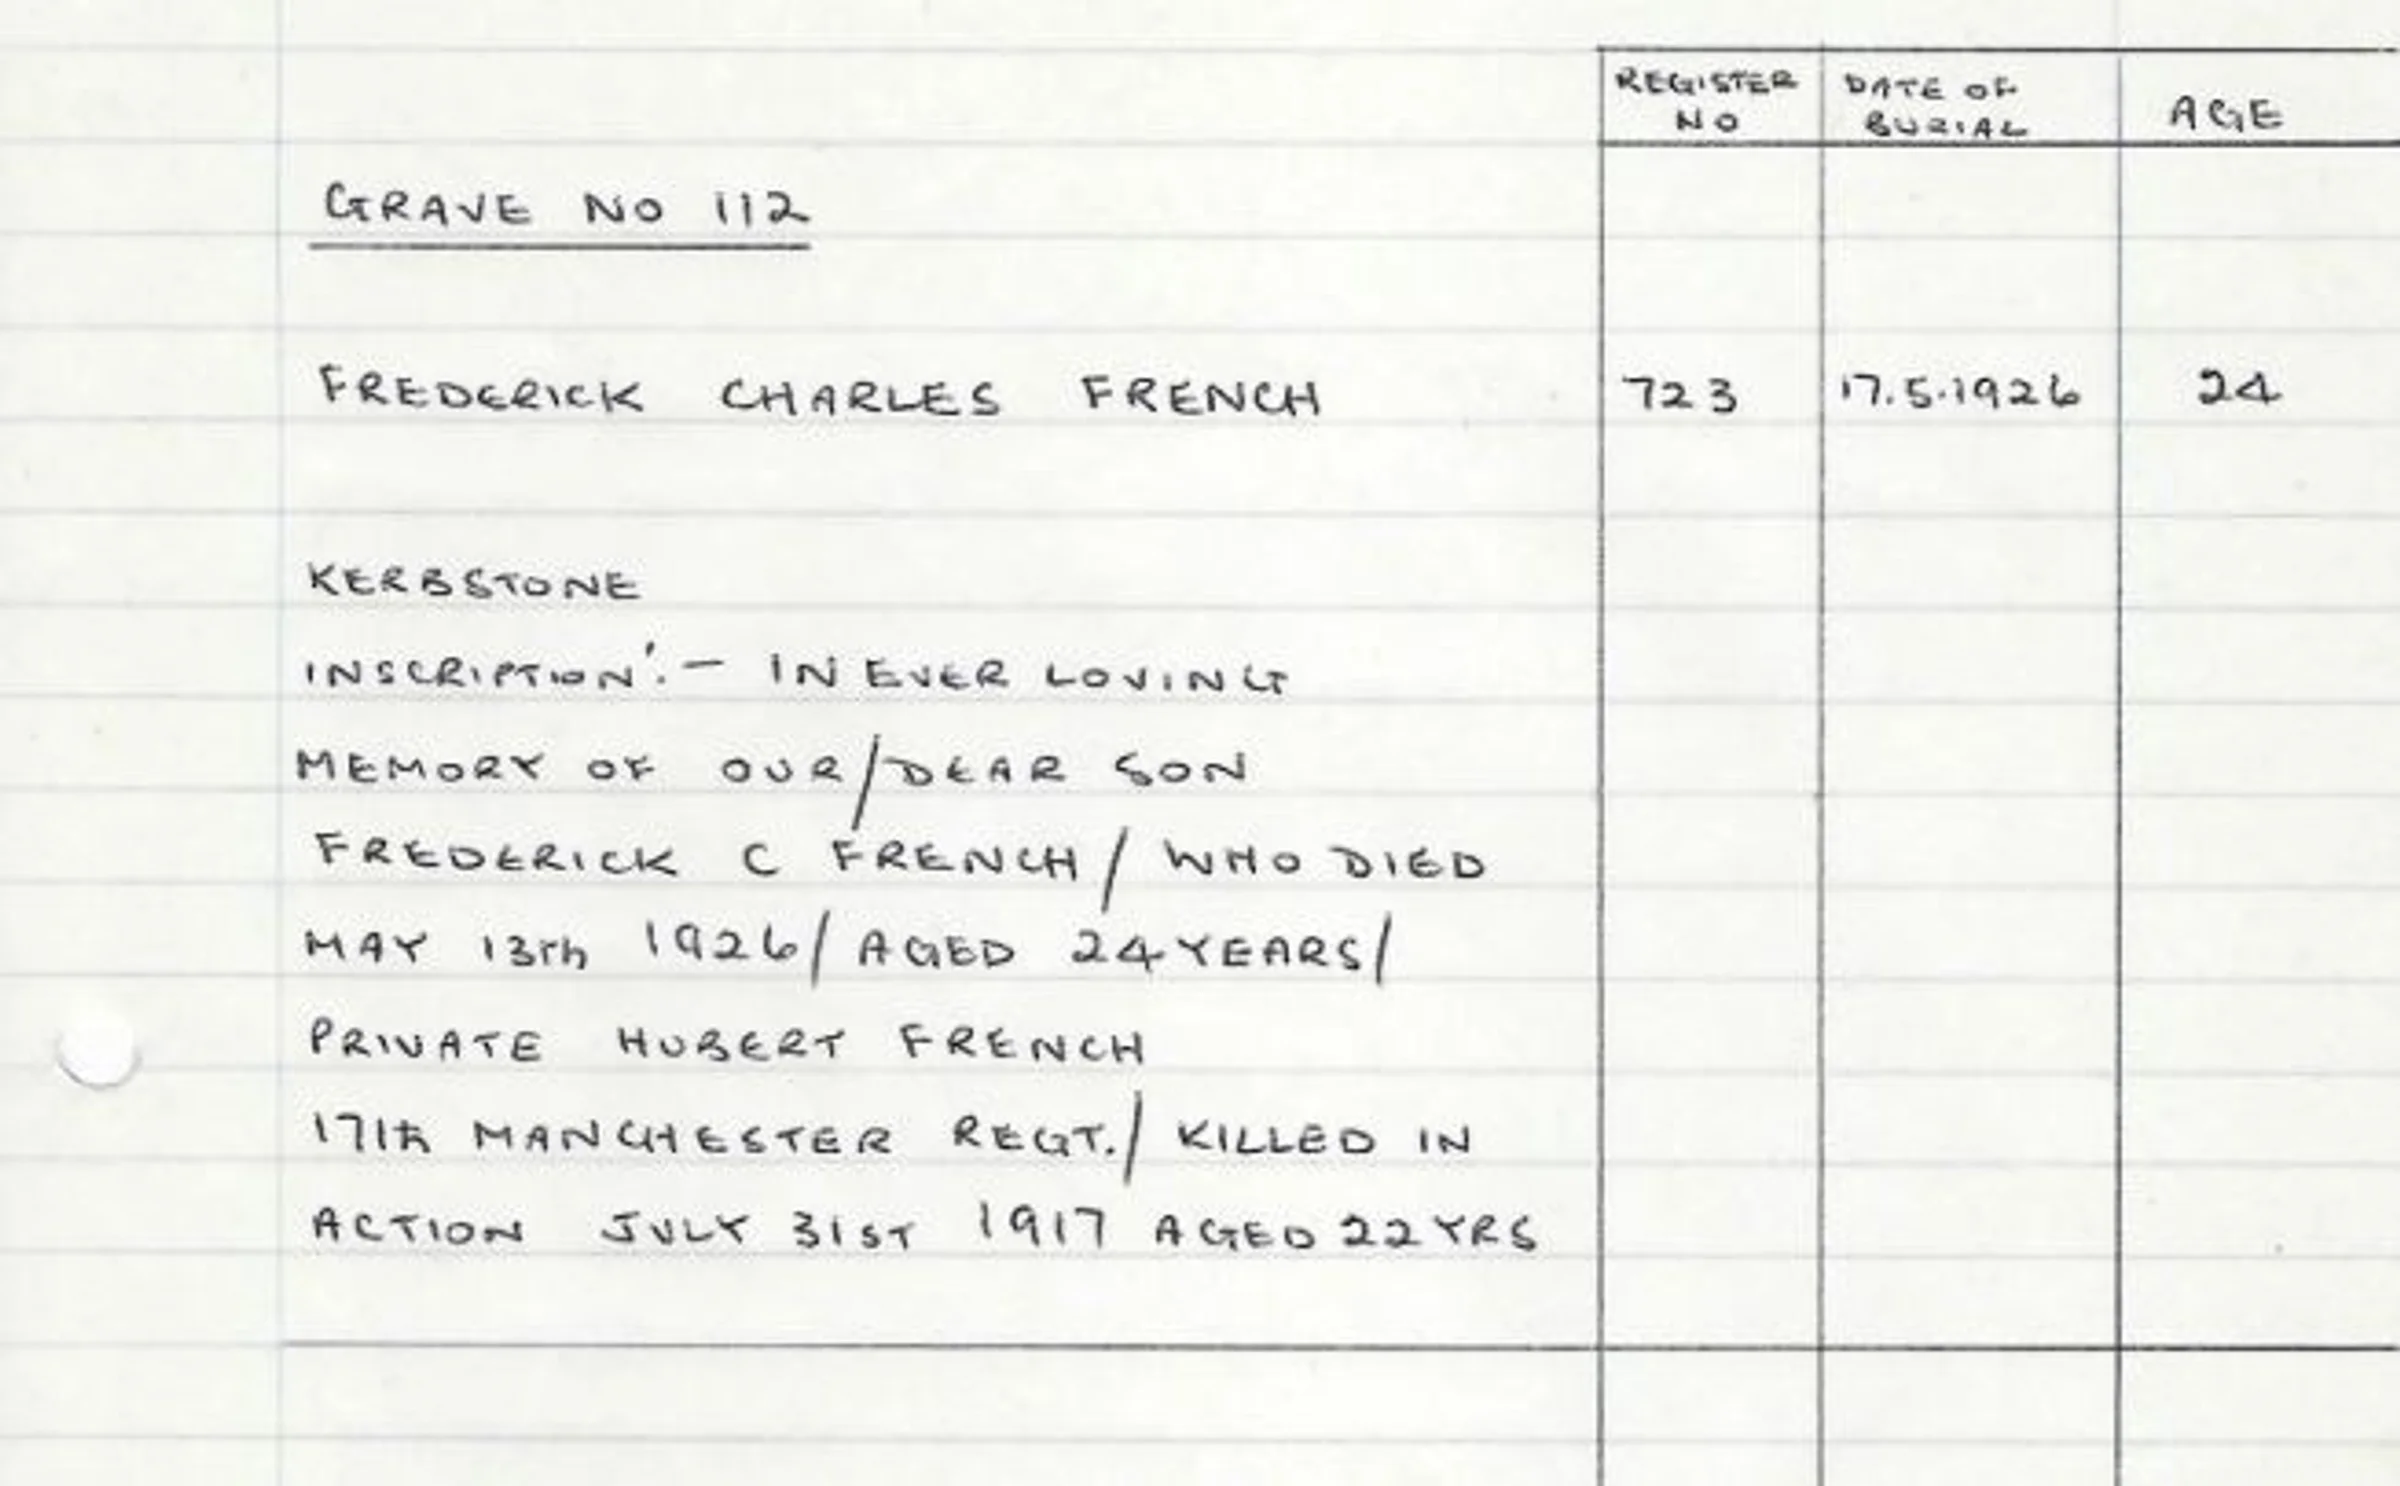 REGISTER NO DATE OF BURIAL AGE
GRAVE NO 112
FREDERICK CHARLES FRENCH 723 17.5.1926 24
KERBSTONE
INSCRIPTION:- IN EVER LOVING
MEMORY OF OUR/DEAR SON
FREDERICK C FRENCH/ WHO DIED
MAY 13th 1926/ AGED 24 YEARS/
PRIVATE HUBERT FRENCH
17th MANCHESTER REGT./ KILLED IN
ACTION JULY 31ST 1917 AGED 22 YRS